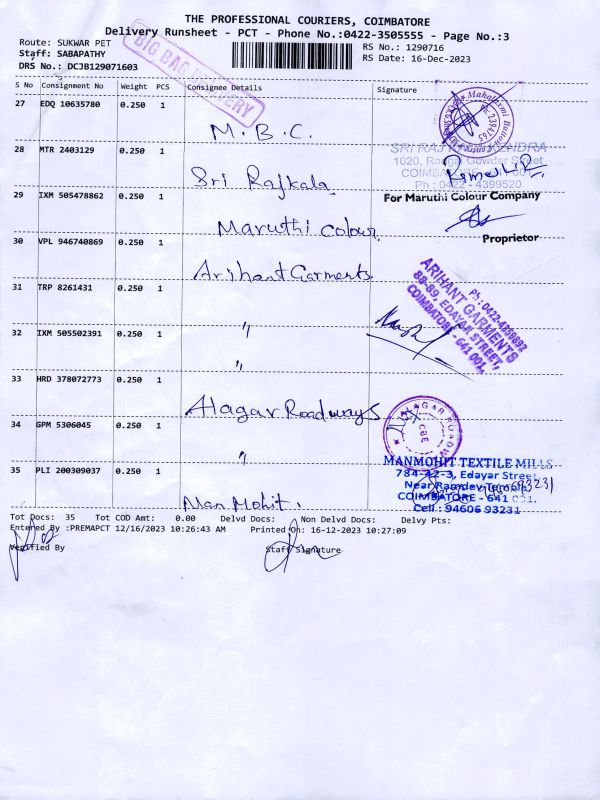 THE PROFESSIONAL COURIERS, COIMBATORE
Delivery Runsheet - PCT - Phone No.:0422-3505555 - Page No.:3
Route: SUKWAR PET
RS No.: 1290716
Staff: SABAPATHY
RS Date: 16-Dec-2023
DRS No.: DCJB129071603
BIG BAG DELIVERY
S No Consignment No Weight PCS Consignee Details Signature
27 EDQ 10635780 0.250 1
M.B.C.
Mahalaxmi Button Centre
28 MTR 2403129 0.250 1
Sri Rajkala
1020, Rangai Gowder Street
COIMBATORE - 641 001
Ph : 0422 - 4399520
29 IXM 505478862 0.250 1
Maruthi Colour
For Maruthi Colour Company
Proprietor
30 VPL 946740869 0.250 1
Arihant Garments
31 TRP 8261431 0.250 1
"
ARIHANT GARMENTS
88-89, EDAYAR STREET,
COIMBATORE - 641 001.
Ph : 0422-4359892
32 IXM 505502391 0.250 1
"
33 HRD 378072773 0.250 1
Alagar Roadways
ALAGAR ROADWAYS
CBE
34 GPM 5306045 0.250 1
"
35 PLI 200309037 0.250 1
Man Mohit.
MANMOHIT TEXTILE MILLS
784-42-3, Edayar Street,
Near Ramdev Temple,
COIMBATORE - 641 001.
Cell : 94606 93231
Tot Docs: 35 Tot COD Amt: 0.00 Delvd Docs: Non Delvd Docs: Delvy Pts:
Entered By :PREMAPCT 12/16/2023 10:26:43 AM Printed On: 16-12-2023 10:27:09
Verified By Staff Signature